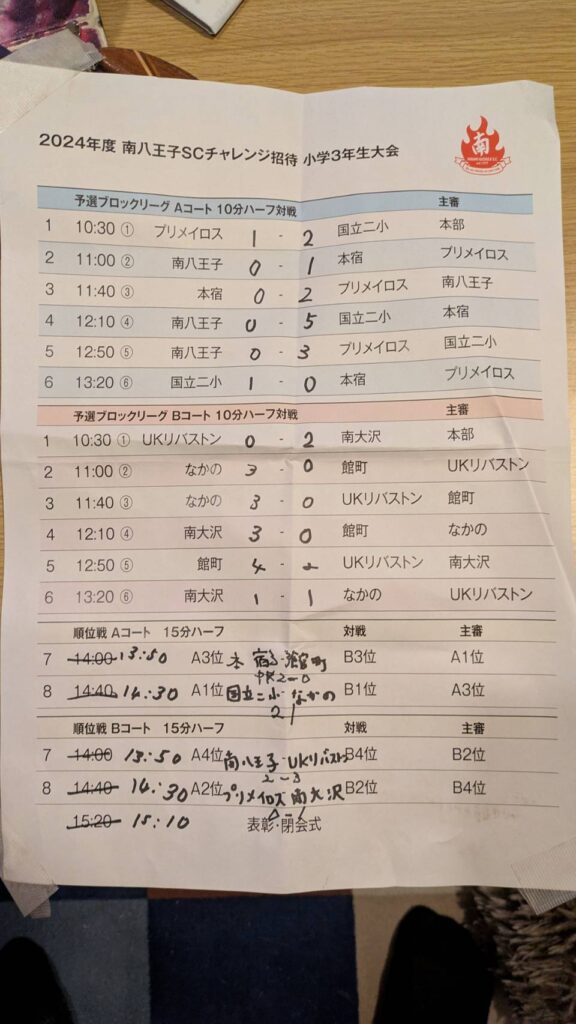 2024年度 南八王子SCチャレンジ招待 小学3年生大会
南
予選ブロックリーグ Aコート 10分ハーフ対戦 主審
1 10:30 ① プリメイロス 1 - 2 国立二小 本部
2 11:00 ② 南八王子 0 - 1 本宿 プリメイロス
3 11:40 ③ 本宿 0 - 2 プリメイロス 南八王子
4 12:10 ④ 南八王子 0 - 5 国立二小 本宿
5 12:50 ⑤ 南八王子 0 - 3 プリメイロス 国立二小
6 13:20 ⑥ 国立二小 1 - 0 本宿 プリメイロス
予選ブロックリーグ Bコート 10分ハーフ対戦 主審
1 10:30 ① UKリバストン 0 - 2 南大沢 本部
2 11:00 ② なかの 3 - 0 館町 UKリバストン
3 11:40 ③ なかの 3 - 0 UKリバストン 館町
4 12:10 ④ 南大沢 3 - 0 館町 なかの
5 12:50 ⑤ 館町 4 - 2 UKリバストン 南大沢
6 13:20 ⑥ 南大沢 1 - 1 なかの UKリバストン
順位戦 Aコート 15分ハーフ 対戦 主審
7 14:00 13:50 A3位 本宿 館町 B3位 A1位
2-0
8 14:40 14:30 A1位 国立二小 なかの B1位 A3位
2 1
順位戦 Bコート 15分ハーフ 対戦 主審
7 14:00 13:50 A4位 南八王子・UKリバストン B4位 B2位
2-3
8 14:40 14:30 A2位 プリメイロス 南大沢 B2位 B4位
15:20 15:10 表彰・閉会式